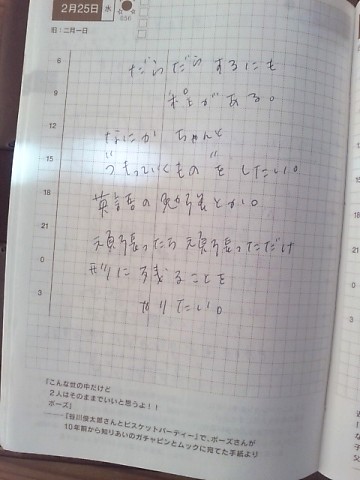 2月25日 水
056
旧:二月一日
6
9
12
15
18
21
0
3
だらだらするにも
程がある。
なにか ちゃんと
"つもっていくもの"をしたい。
英語の勉強とか。
頑張ったら頑張っただけ
形に残ることを
やりたい。
『こんな世の中だけど
2人はそのままでいいと思うよ!!
ボーズ』
――『谷川俊太郎さんとビスケットパーティー』で、ボーズさんが
10年前から知りあいのガチャピンとムックに宛てた手紙より